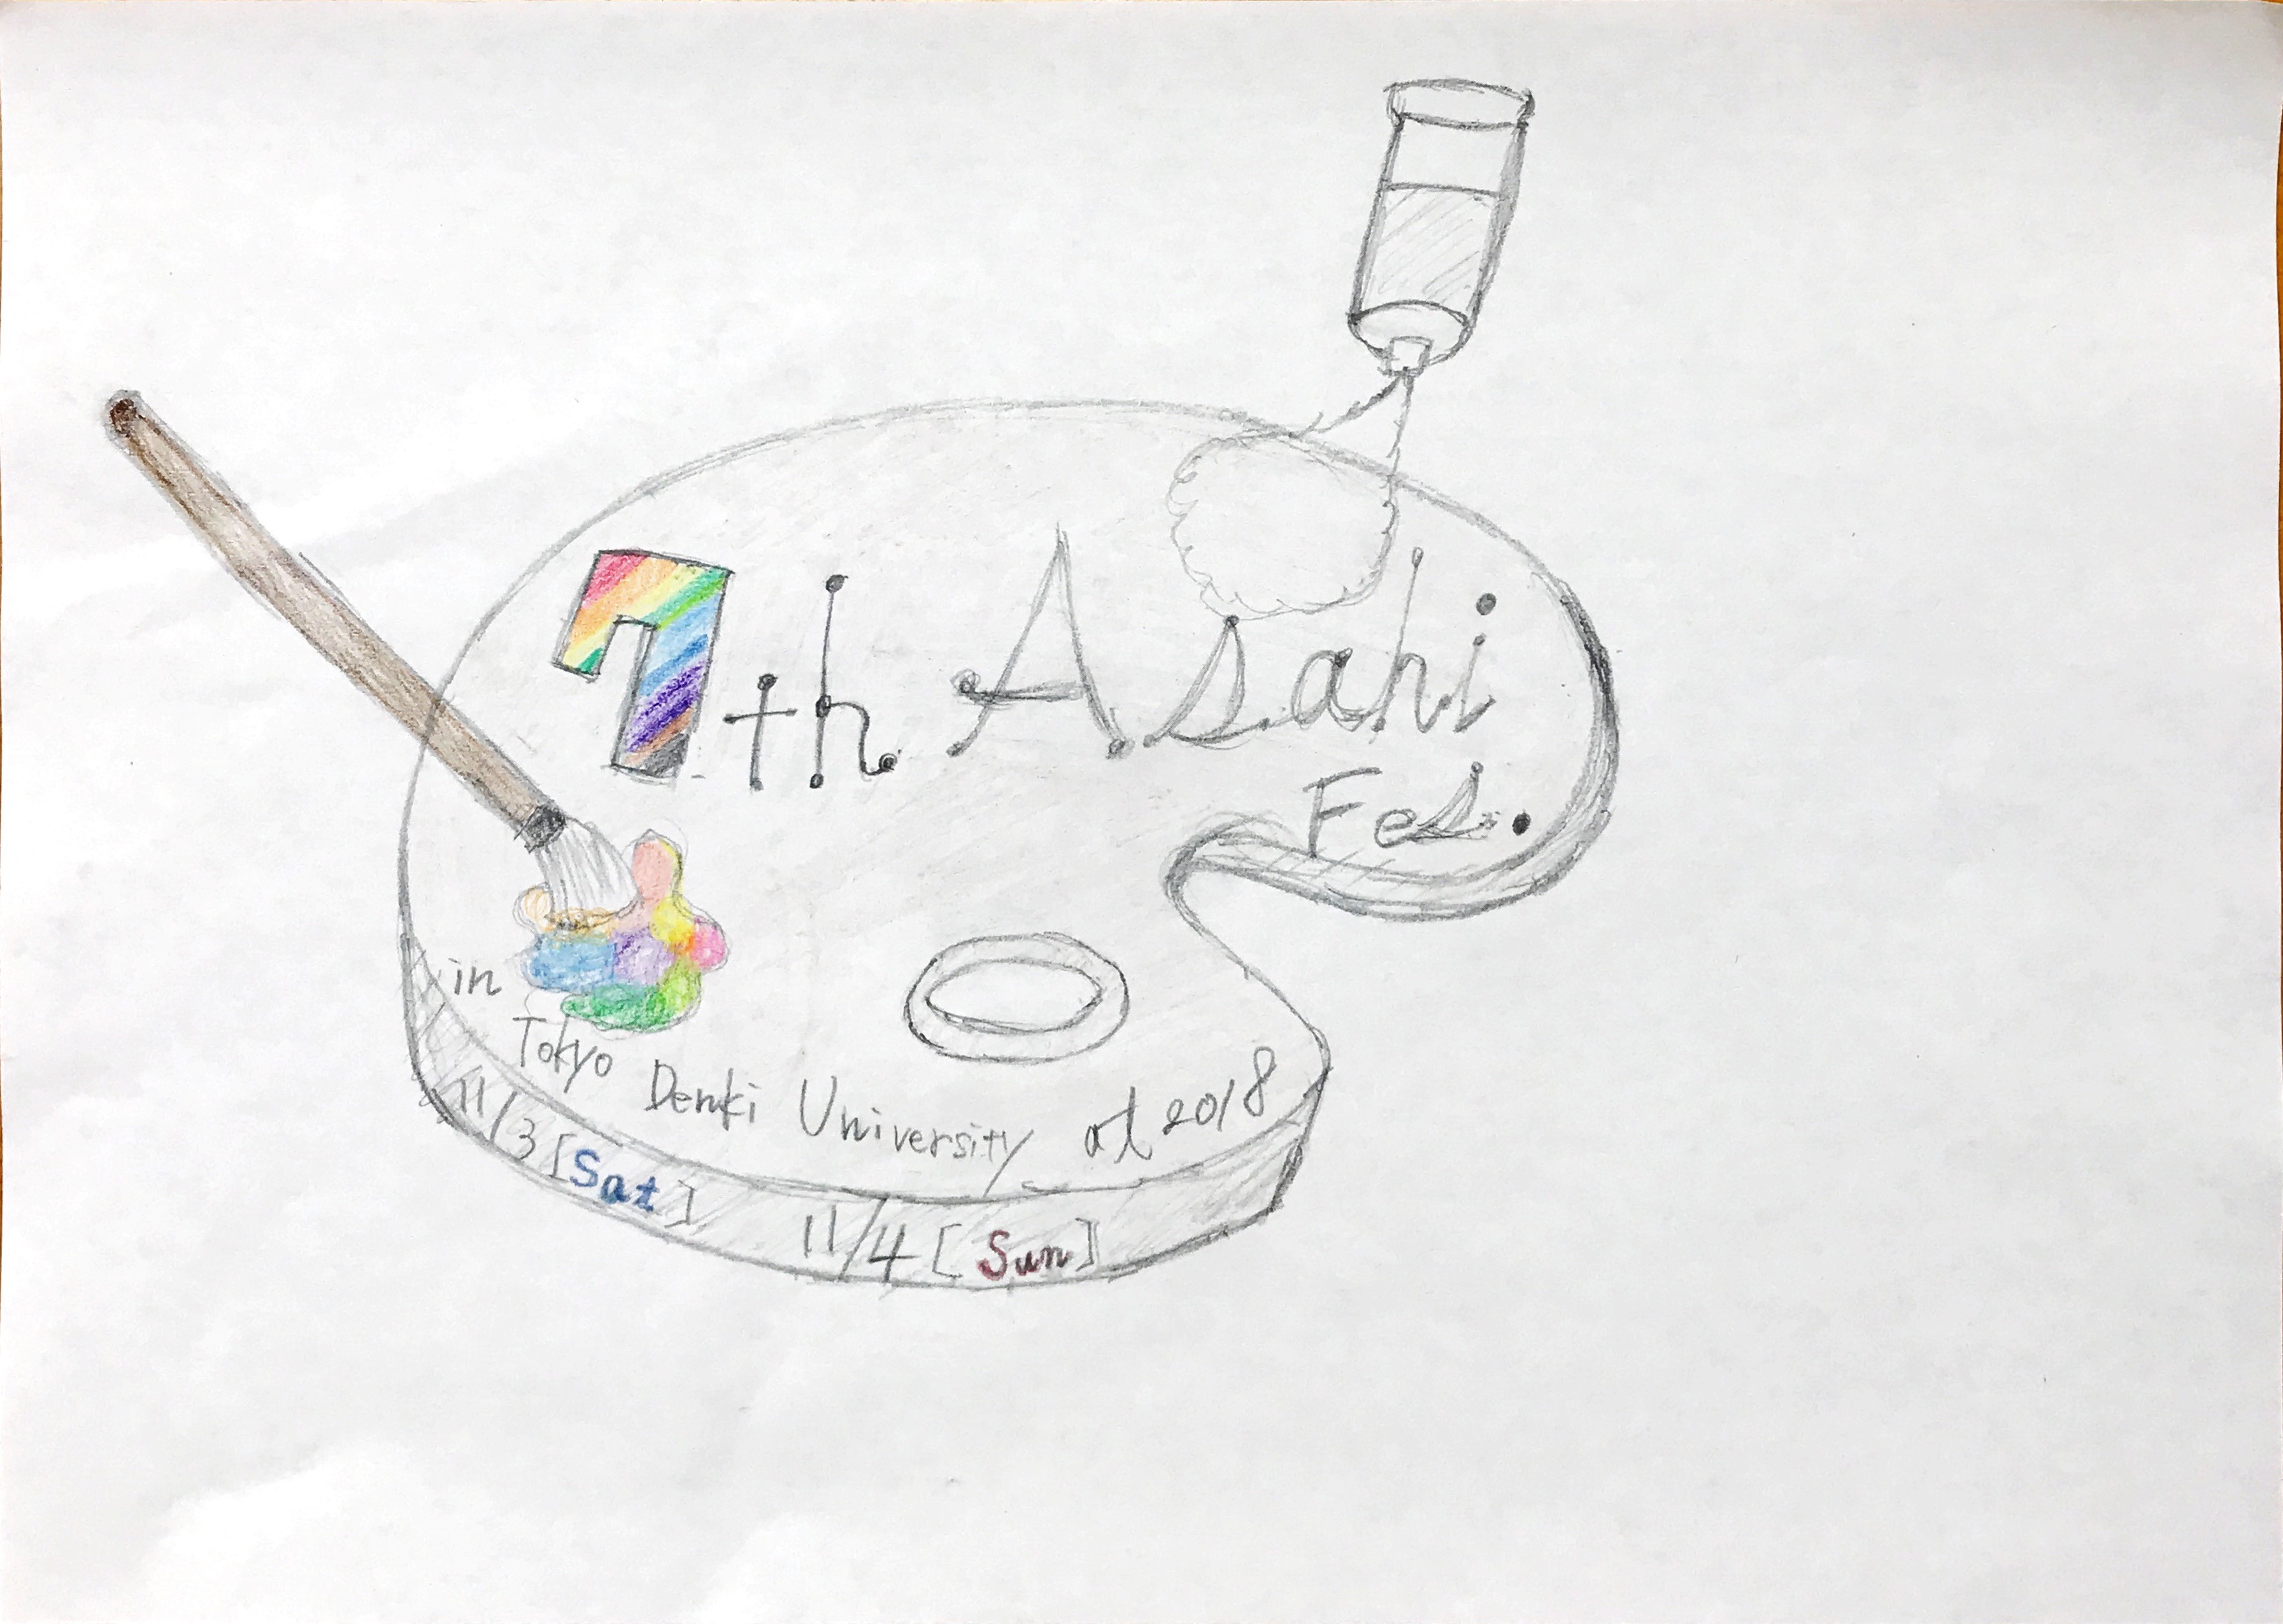 7th Asahi
Fes.
in Tokyo Denki University at 2018
11/3 [Sat]
11/4 [Sun]